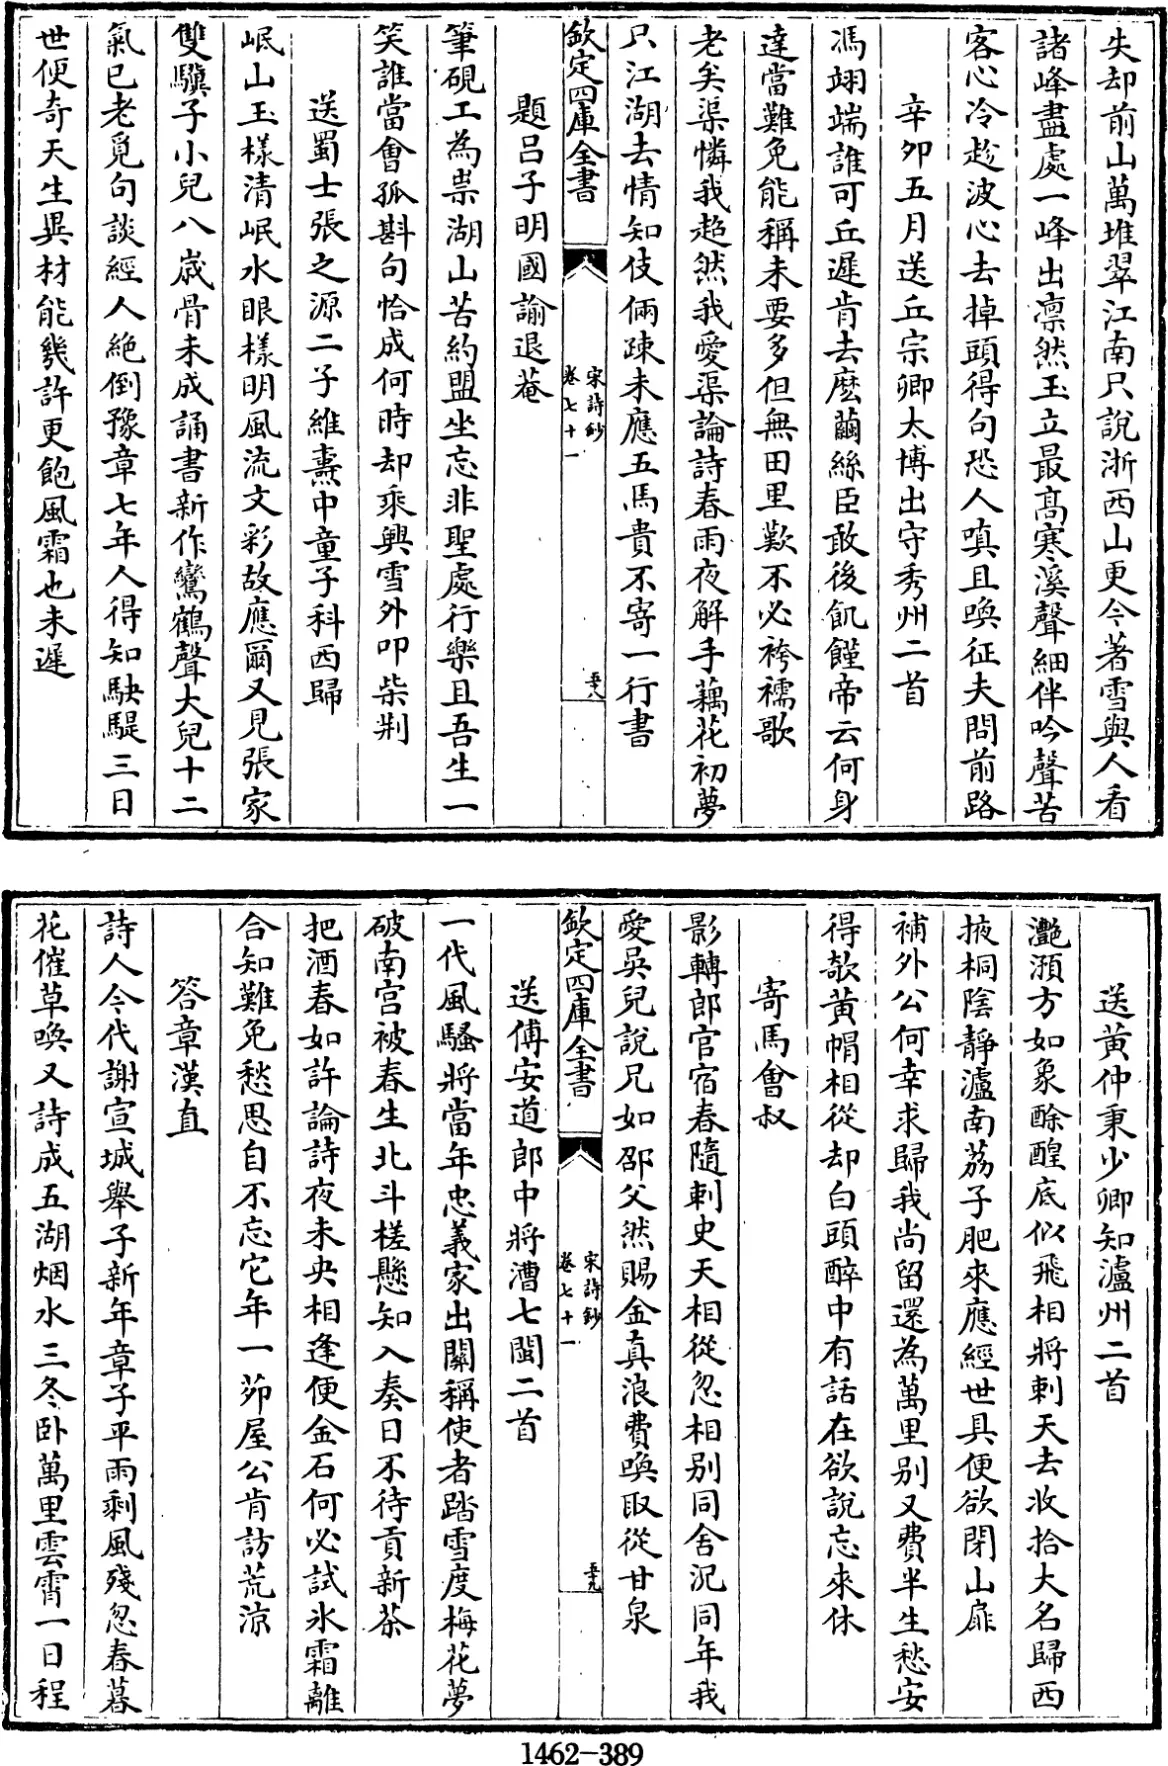 失却前山萬堆翠江南只說浙西山更今著雪與人看
諸峰盡處一峰出凛然玉立最高寒溪聲細伴吟聲苦
客心冷趁波心去掉頭得句恐人嗔且喚征夫問前路
辛卯五月送丘宗卿太博出守秀州二首
馮翊端誰可丘遲肯去麽繭絲臣敢後飢饉帝云何身
達當難免能稱未要多但無田里歎不必袴襦歌
老矣渠憐我超然我愛渠論詩春雨夜解手藕花初夢
只江湖去情知伎倆疎未應五馬貴不寄一行書
欽定四庫全書
宋詩鈔
卷七十一
五十八
題吕子明國諭退菴
筆硯工為祟湖山苦約盟坐忘非聖處行樂且吾生一
笑誰當會孤斟句恰成何時却乘興雪外叩柴荆
送蜀士張之源二子維燾中童子科西歸
岷山玉様清岷水眼様明風流文彩故應爾又見張家
雙驥子小兒八歲骨未成誦書新作鸞鶴聲大兒十二
氣已老覓句談經人絶倒豫章七年人得知駃騠三日
世便奇天生異材能幾許更飽風霜也未遲
送黄仲秉少卿知瀘州二首
灧澦方如象酴醿底似飛相將刺天去收拾大名歸西
掖桐陰靜瀘南荔子肥來應經世具便欲閉山扉
補外公何幸求歸我尚留還為萬里别又費半生愁安
得欹黄帽相從却白頭醉中有話在欲說忘來休
寄馬會叔
影轉郎官宿春隨刺史天相從忽相别同舍况同年我
愛吳兒說兄如邵父然賜金真浪費喚取從甘泉
欽定四庫全書
宋詩鈔
卷七十一
五十九
送傅安道郎中將漕七閩二首
一代風騷將當年忠義家出關稱使者踏雪度梅花夢
破南宫被春生北斗槎懸知入奏日不待貢新茶
把酒春如許論詩夜未央相逢便金石何必試氷霜離
合知難免愁思自不忘它年一茆屋公肯訪荒涼
答章漢直
詩人今代謝宣城舉子新年章子平雨剩風殘忽春暮
花催草喚又詩成五湖烟水三冬卧萬里雲霄一日程
1462-389